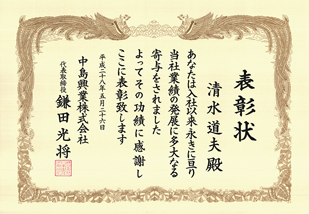 表彰状
清水道夫殿
あなたは入社以来永きに亘り
当社業績の発展に多大なる
寄与をされました
よってその功績に感謝し
ここに表彰致します
平成二十八年五月二十六日
中島興業株式会社
代表取締役 鎌田光将